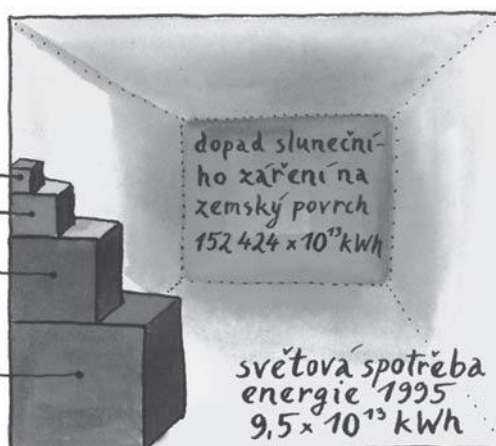 dopad sluneční-
ho záření na
zemský povrch
152 424 x 10¹³ kWh
světová spotřeba
energie 1995
9,5 x 10¹³ kWh